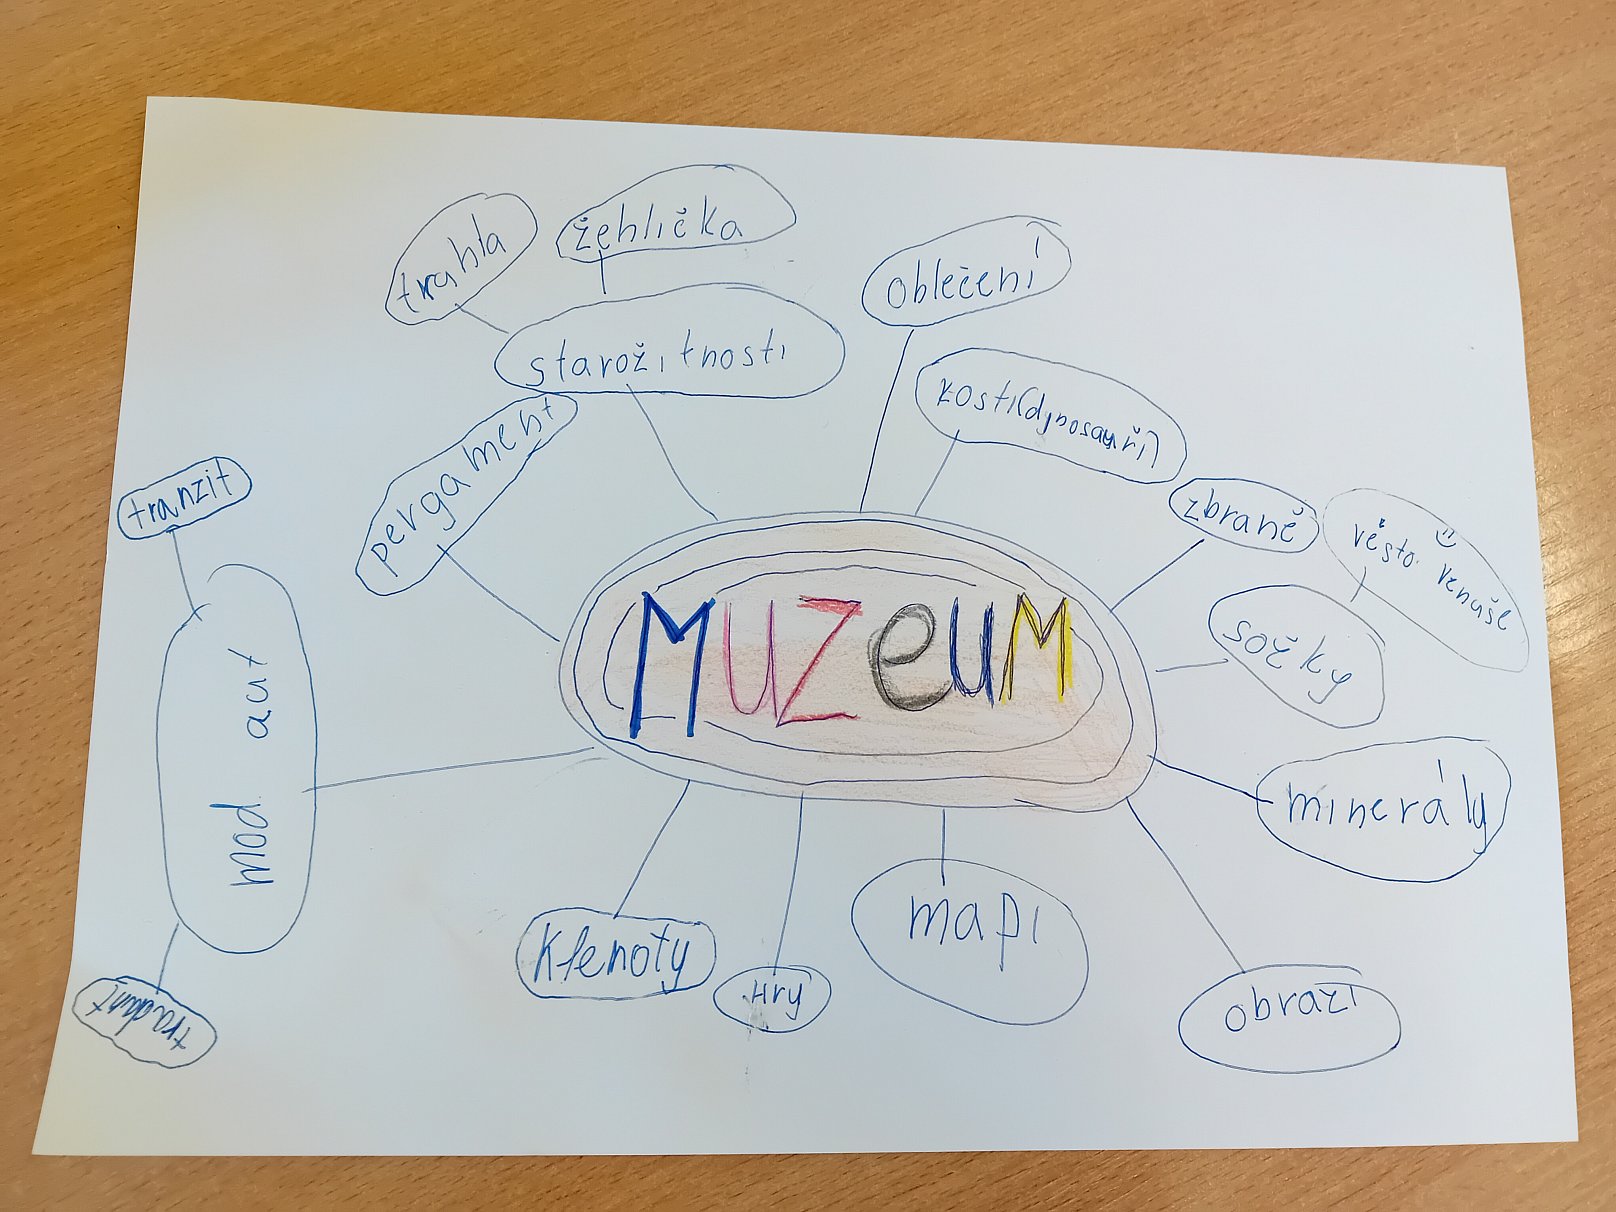 žehlička
trahla
oblečení
starožitnosti
kosti(dynosauři)
pergament
tranzit
zbraně
věsto. venuše
MUZeUM
sošky
mod aut
minerály
klenoty
Hry
mapi
obrazi